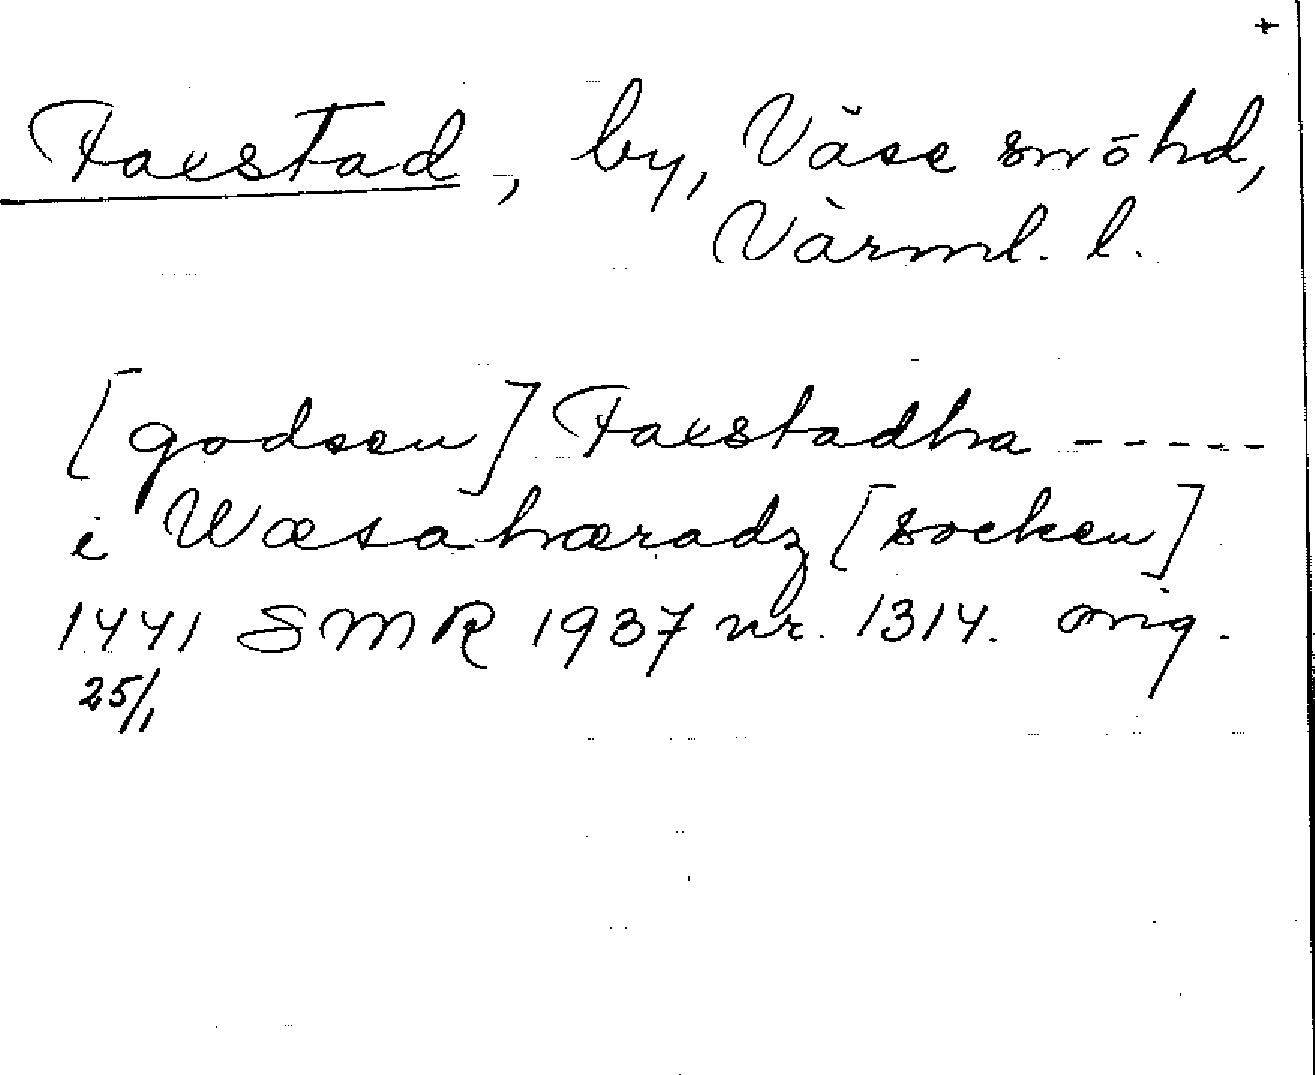 +
Faxstad, by, Väse snöhd,
Värml. l.
[godsen] Faxstadha -----
i Wæsahæradz [socken]
1441 SMR 1937 nr. 1314. orig.
25/1